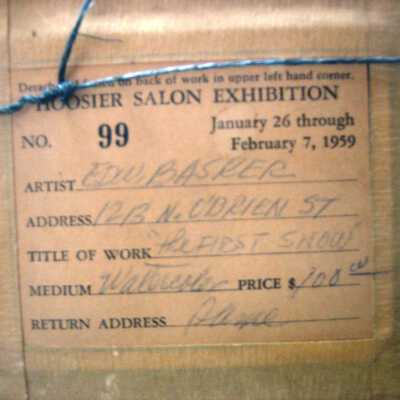 on back of work in upper left hand corner.
HOOSIER SALON EXHIBITION
NO. 99 January 26 through
February 7, 1959
ARTIST EDW. BASKER
ADDRESS 12B N. O'BRIEN ST
TITLE OF WORK "THE FIRST SNOW"
MEDIUM Watercolor PRICE $ 100 00
RETURN ADDRESS Same